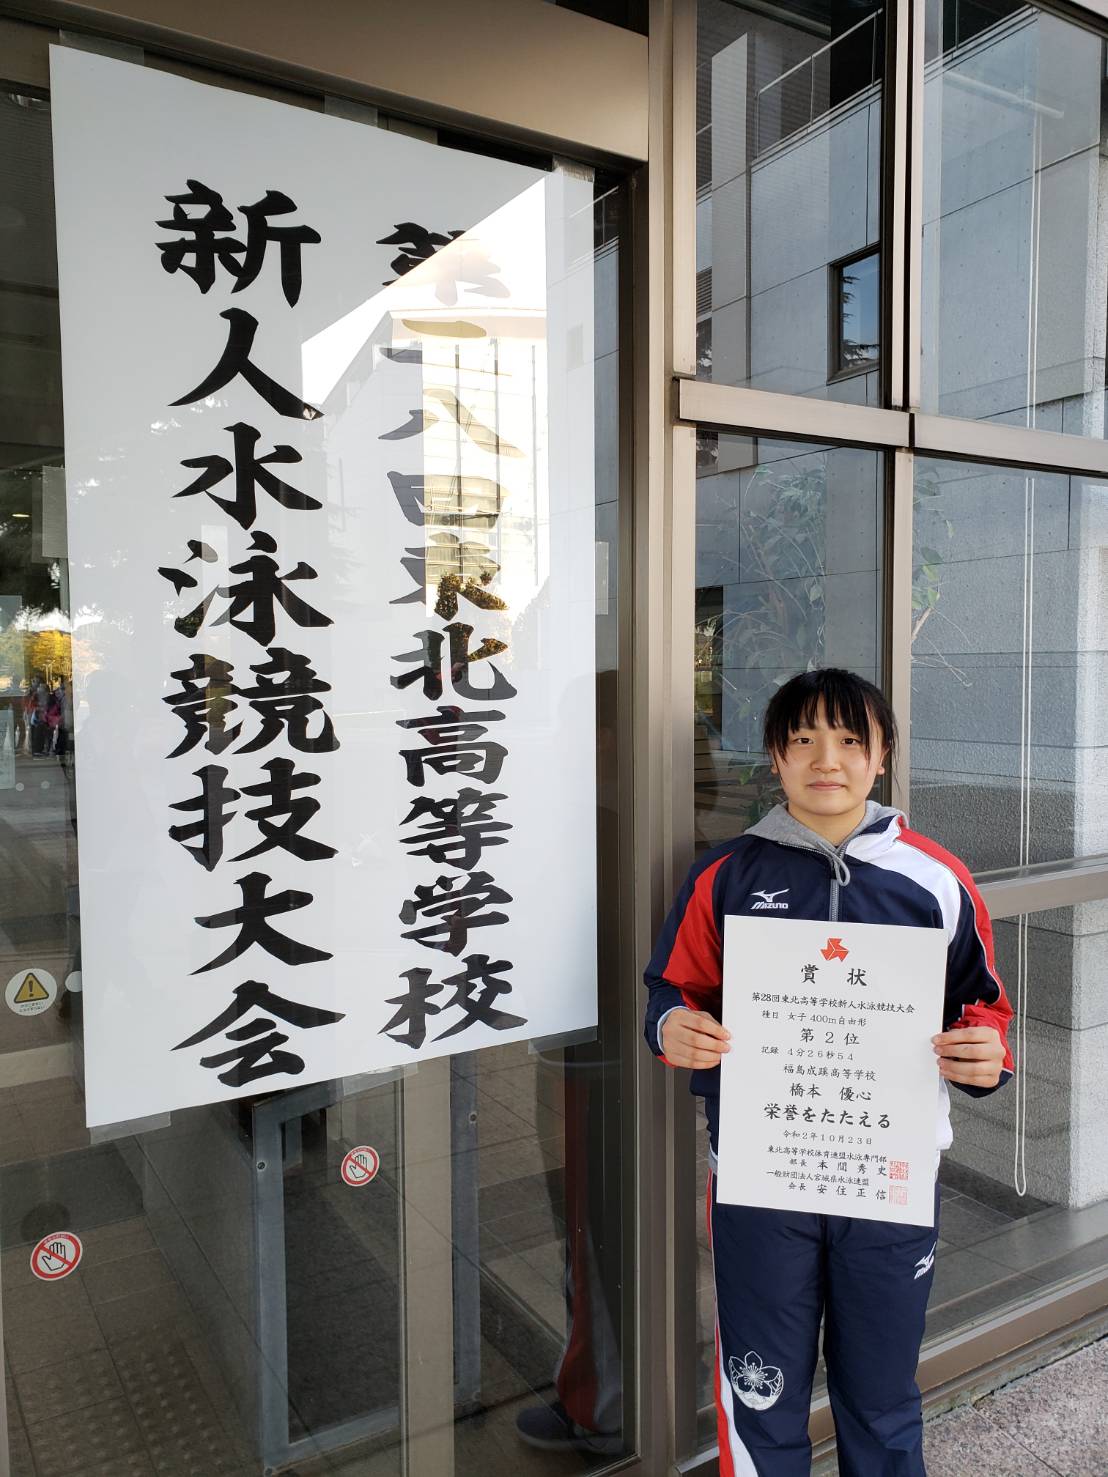 第二八回東北高等学校
新人水泳競技大会
MIZUNO
賞状
第28回東北高等学校新人水泳競技大会
種目 女子 400m自由形
第 2 位
記録 4分26秒54
福島成蹊高等学校
橋本 優心
栄誉をたたえる
令和2年10月23日
東北高等学校体育連盟水泳専門部
部長 本間秀史
一般財団法人宮城県水泳連盟
会長 安住正信
MIZUNO